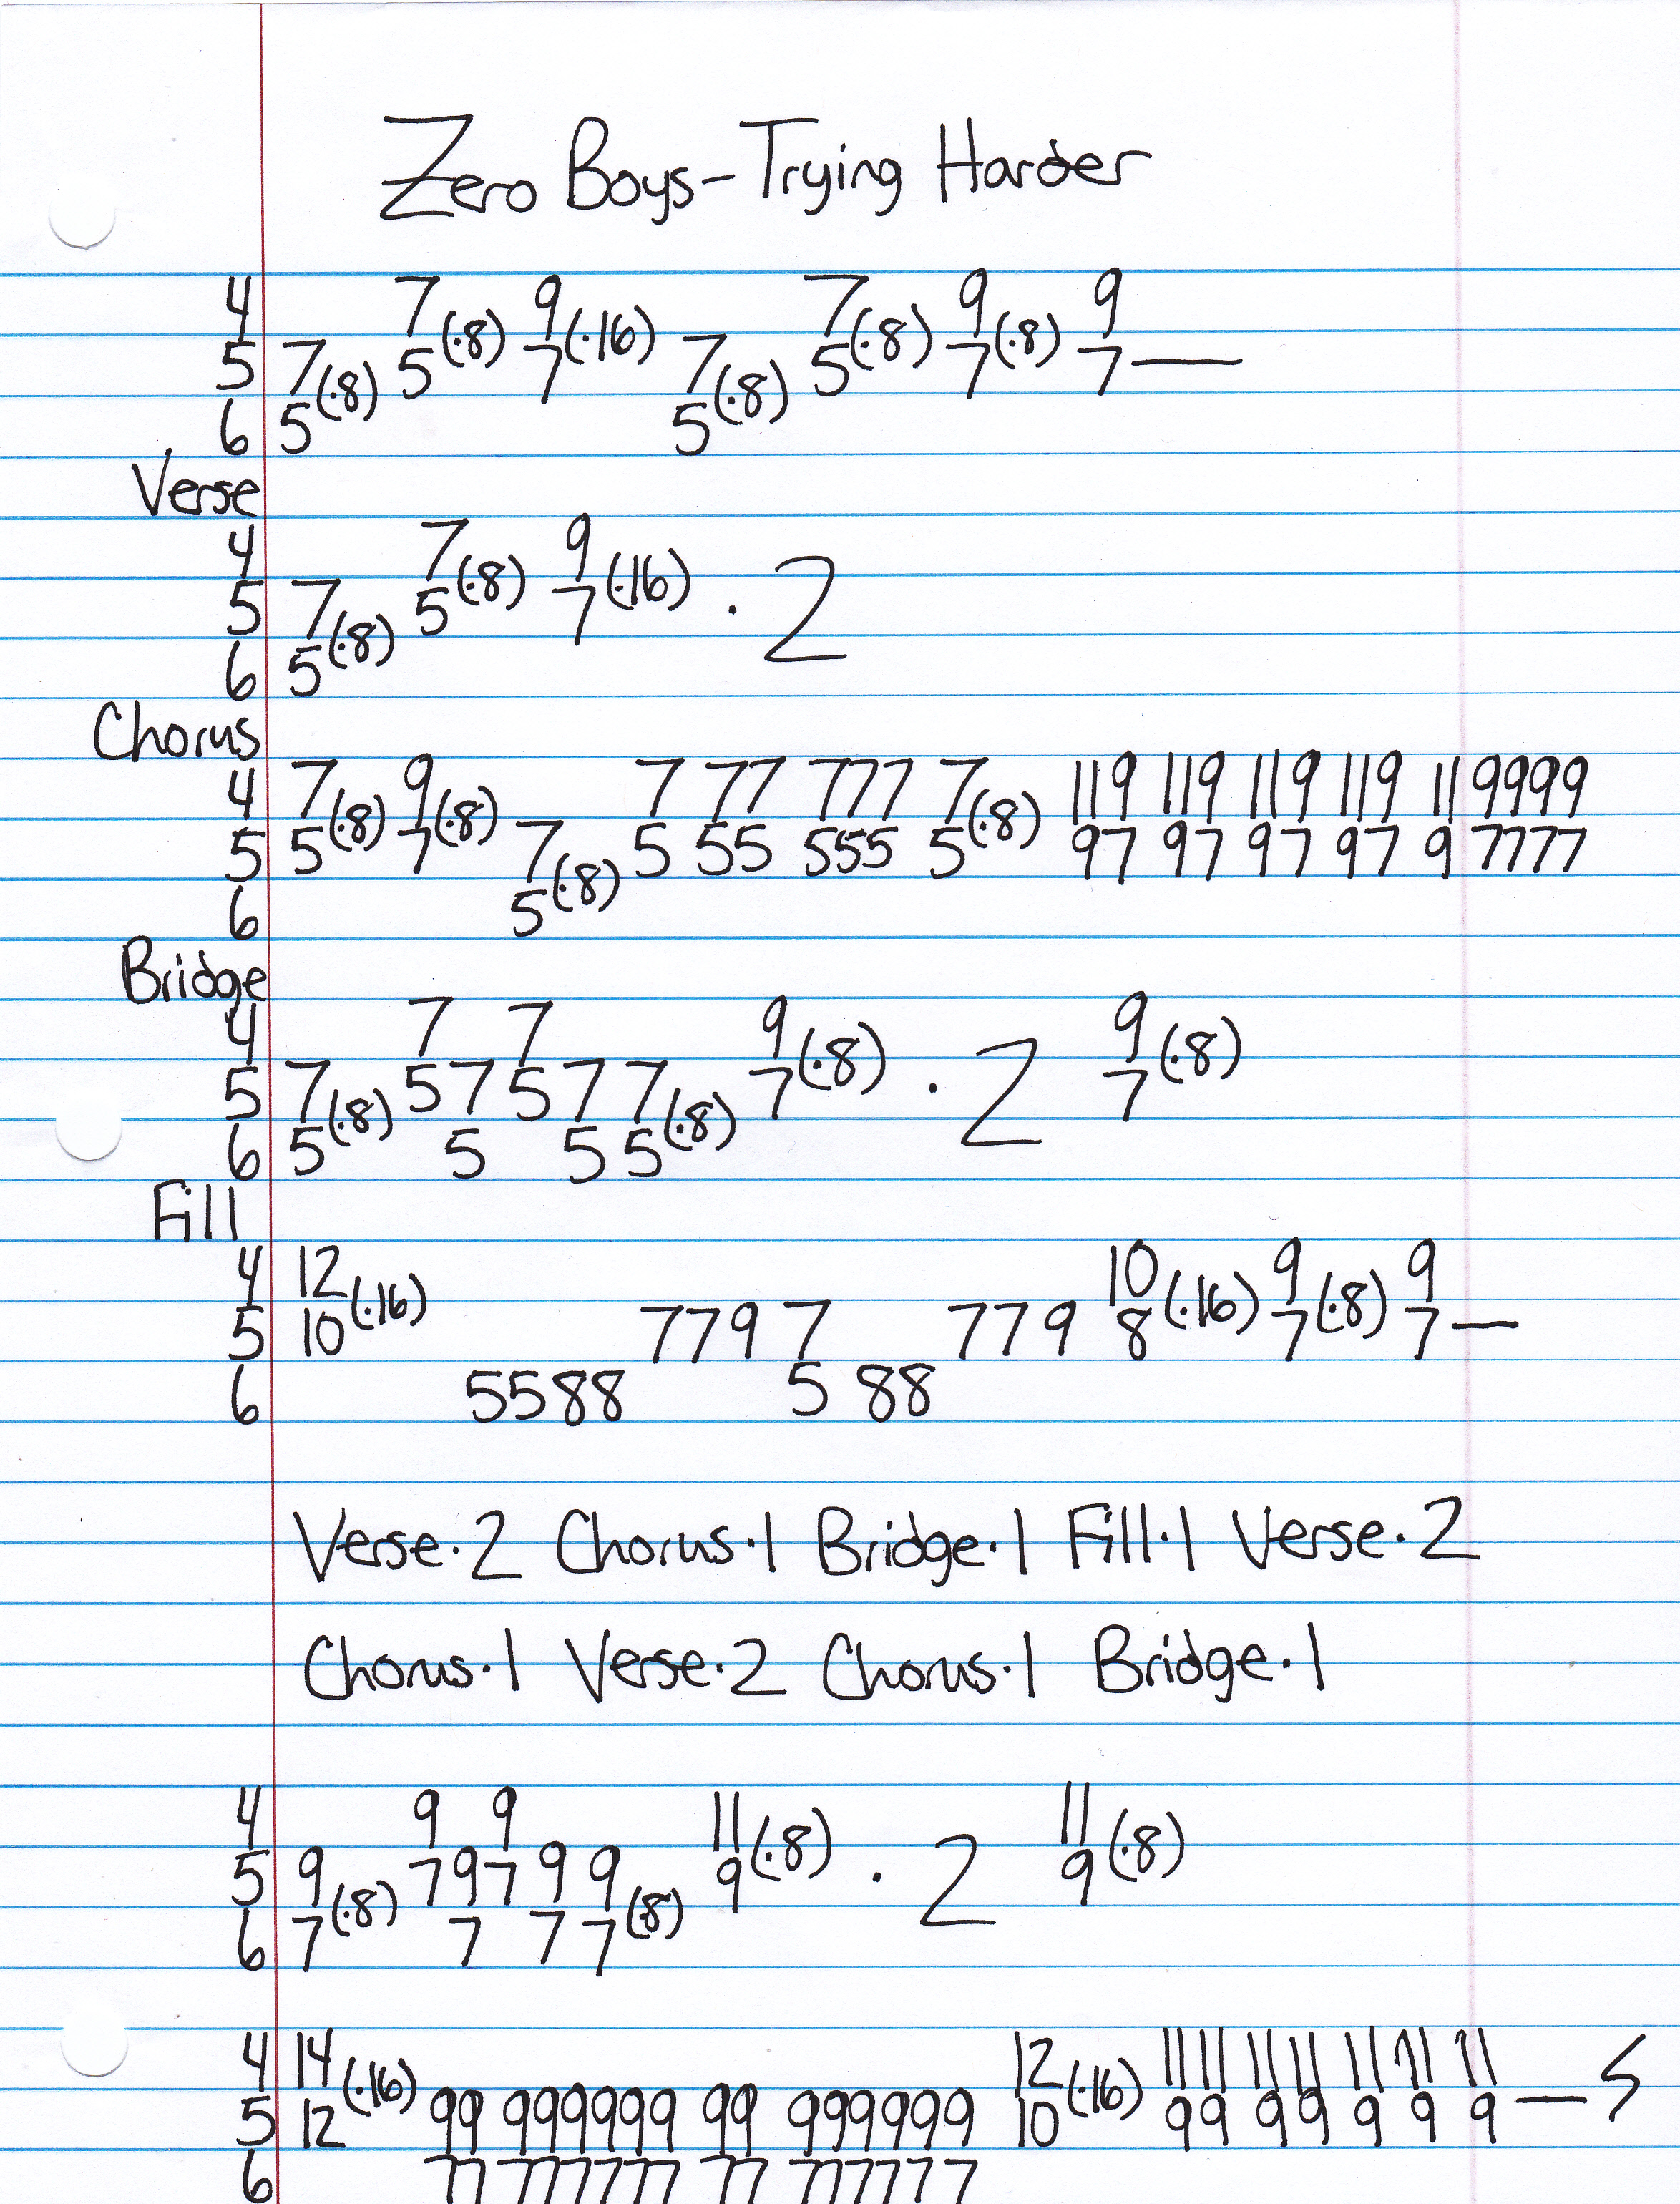 Zero Boys-Trying Harder
4 7(·8) 9(·16) 7(·8) 9(·8) 9
5 7(·8) 5 7 7(·8) 5 7 7—
6 5 5
Verse
4 7(·8) 9(·16) · 2
5 7(·8) 5 7
6 5
Chorus
4 7(·8) 9(·8) 7 77 777 7(·8) 119 119 119 119 11 9999
5 5 7 7(·8) 5 55 555 5 97 97 97 97 9 7777
6 5
Bridge
4 7 7 9(·8) · 2 9(·8)
5 7(·8) 5 7 5 7 7(·8) 7 7
6 5 5 5 5
Fill
4 12(·16) 10(·16) 9(·8) 9
5 10 779 7 779 8 7 7—
6 5588 5 88
Verse·2 Chorus·1 Bridge·1 Fill·1 Verse·2
Chorus·1 Verse·2 Chorus·1 Bridge·1
4 9 9 11(·8) · 2 11(·8)
5 9(·8) 7 9 7 9 9(·8) 9 9
6 7 7 7 7
4 14(·16) 12(·16) 1111 1111 11 11 11 — S
5 12 99 999999 99 999999 10 99 99 9 9 9
6 77 777777 77 777777